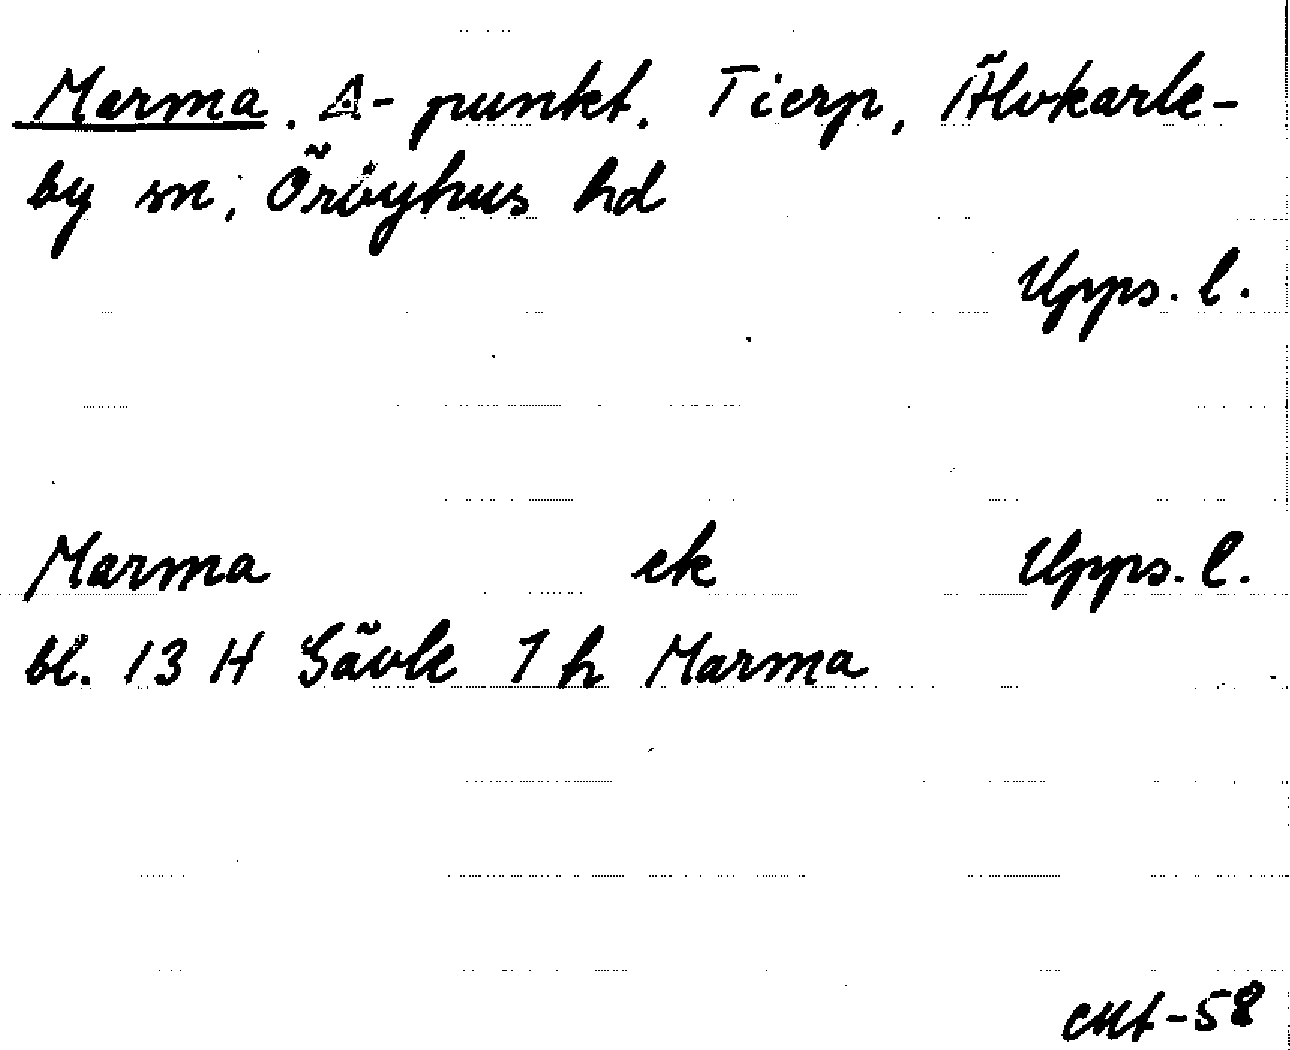 Marma. A-punkt. Tierp, Älvkarle-
by sn, Örbyhus hd
Upps. l.
Marma ek Upps. l.
bl. 13 H Gävle 7 h Marma
-58